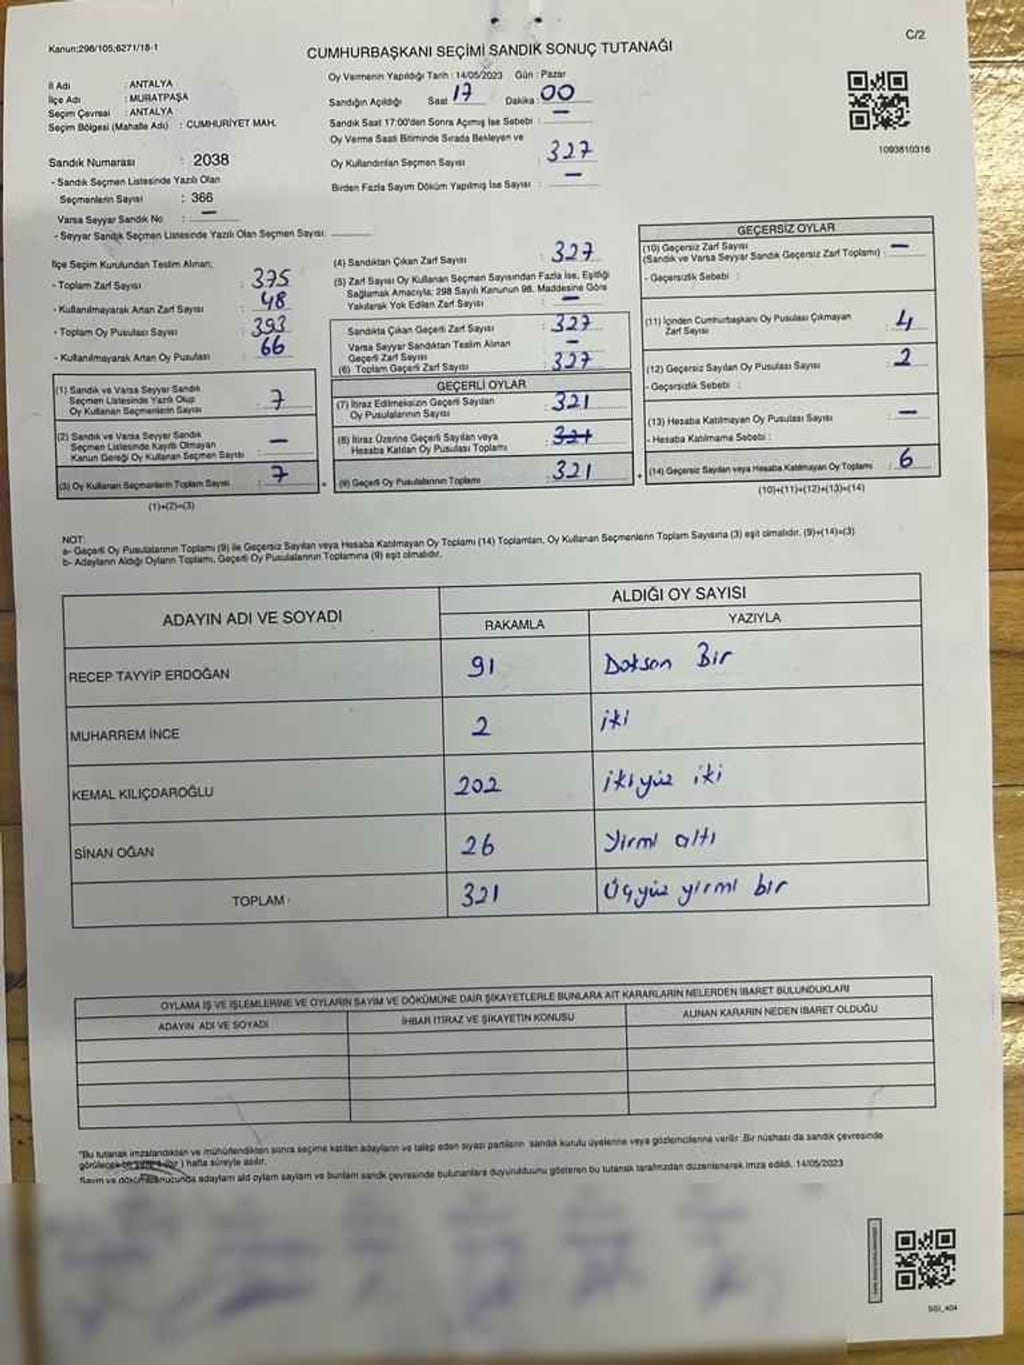 Kanun:298/105;6271/18-1
C/2
CUMHURBAŞKANI SEÇİMİ SANDIK SONUÇ TUTANAĞI
İl Adı : ANTALYA
İlçe Adı : MURATPAŞA
Seçim Çevresi : ANTALYA
Seçim Bölgesi (Mahalle Adı) : CUMHURİYET MAH.
Sandık Numarası : 2038
- Sandık Seçmen Listesinde Yazılı Olan
Seçmenlerin Sayısı : 366
Varsa Seyyar Sandık No : —
- Seyyar Sandık Seçmen Listesinde Yazılı Olan Seçmen Sayısı:
Oy Vermenin Yapıldığı Tarih : 14/05/2023 Gün : Pazar
Sandığın Açıldığı Saat : 17 Dakika : 00
Sandık Saat 17:00'den Sonra Açılmış İse Sebebi : —
Oy Verme Saati Bitiminde Sırada Bekleyen ve
Oy Kullandırılan Seçmen Sayısı : 327
Birden Fazla Sayım Döküm Yapılmış İse Sayısı : —
1093810316
İlçe Seçim Kurulundan Teslim Alınan;
- Toplam Zarf Sayısı : 375
- Kullanılmayarak Artan Zarf Sayısı : 48
- Toplam Oy Pusulası Sayısı : 393
- Kullanılmayarak Artan Oy Pusulası : 66
(1) Sandık ve Varsa Seyyar Sandık
Seçmen Listesinde Yazılı Olup
Oy Kullanan Seçmenlerin Sayısı : 7
(2) Sandık ve Varsa Seyyar Sandık
Seçmen Listesinde Kayıtlı Olmayan
Kanun Gereği Oy Kullanan Seçmen Sayısı : —
(3) Oy Kullanan Seçmenlerin Toplam Sayısı : 7
(1)+(2)=(3)
(4) Sandıktan Çıkan Zarf Sayısı : 327
(5) Zarf Sayısı Oy Kullanan Seçmen Sayısından Fazla İse, Eşitliği
Sağlamak Amacıyla; 298 Sayılı Kanunun 98. Maddesine Göre
Yakılarak Yok Edilen Zarf Sayısı : —
Sandıkta Çıkan Geçerli Zarf Sayısı : 327
Varsa Seyyar Sandıktan Teslim Alınan
Geçerli Zarf Sayısı : —
(6) Toplam Geçerli Zarf Sayısı : 327
GEÇERLİ OYLAR
(7) İtiraz Edilmeksizin Geçerli Sayılan
Oy Pusulalarının Sayısı : 321
(8) İtiraz Üzerine Geçerli Sayılan veya
Hesaba Katılan Oy Pusulası Toplamı : 321
(9) Geçerli Oy Pusulalarının Toplamı : 321
GEÇERSİZ OYLAR
(10) Geçersiz Zarf Sayısı
(Sandık ve Varsa Seyyar Sandık Geçersiz Zarf Toplamı) : —
- Geçersizlik Sebebi :
(11) İçinden Cumhurbaşkanı Oy Pusulası Çıkmayan
Zarf Sayısı : 4
(12) Geçersiz Sayılan Oy Pusulası Sayısı : 2
- Geçersizlik Sebebi :
(13) Hesaba Katılmayan Oy Pusulası Sayısı : —
- Hesaba Katılmama Sebebi :
(14) Geçersiz Sayılan veya Hesaba Katılmayan Oy Toplamı : 6
(10)+(11)+(12)+(13)=(14)
NOT:
a- Geçerli Oy Pusulalarının Toplamı (9) ile Geçersiz Sayılan veya Hesaba Katılmayan Oy Toplamı (14) Toplamları, Oy Kullanan Seçmenlerin Toplam Sayısına (3) eşit olmalıdır. (9)+(14)=(3)
b- Adayların Aldığı Oyların Toplamı, Geçerli Oy Pusulalarının Toplamına (9) eşit olmalıdır.
ADAYIN ADI VE SOYADI
ALDIĞI OY SAYISI
RAKAMLA YAZIYLA
RECEP TAYYİP ERDOĞAN 91 Doksan Bir
MUHARREM İNCE 2 iki
KEMAL KILIÇDAROĞLU 202 ikiyüz iki
SİNAN OĞAN 26 Yirmi altı
TOPLAM : 321 Üçyüz yirmi bir
OYLAMA İŞ VE İŞLEMLERİNE VE OYLARIN SAYIM VE DÖKÜMÜNE DAİR ŞİKAYETLERLE BUNLARA AİT KARARLARIN NELERDEN İBARET BULUNDUKLARI
ADAYIN ADI VE SOYADI İHBAR İTİRAZ VE ŞİKAYETİN KONUSU ALINAN KARARIN NEDEN İBARET OLDUĞU
"Bu tutanak imzalandıktan ve mühürlendikten sonra seçime katılan adayların ve talep eden siyasi partilerin sandık kurulu üyelerine veya gözlemcilerine verilir. Bir nüshası da sandık çevresinde
hafta süreyle asılır.
bulunanlara duyurulduunu gösteren bu tutanak tarafımızdan düzenlenerek imza edildi. 14/05/2023
SSI_404